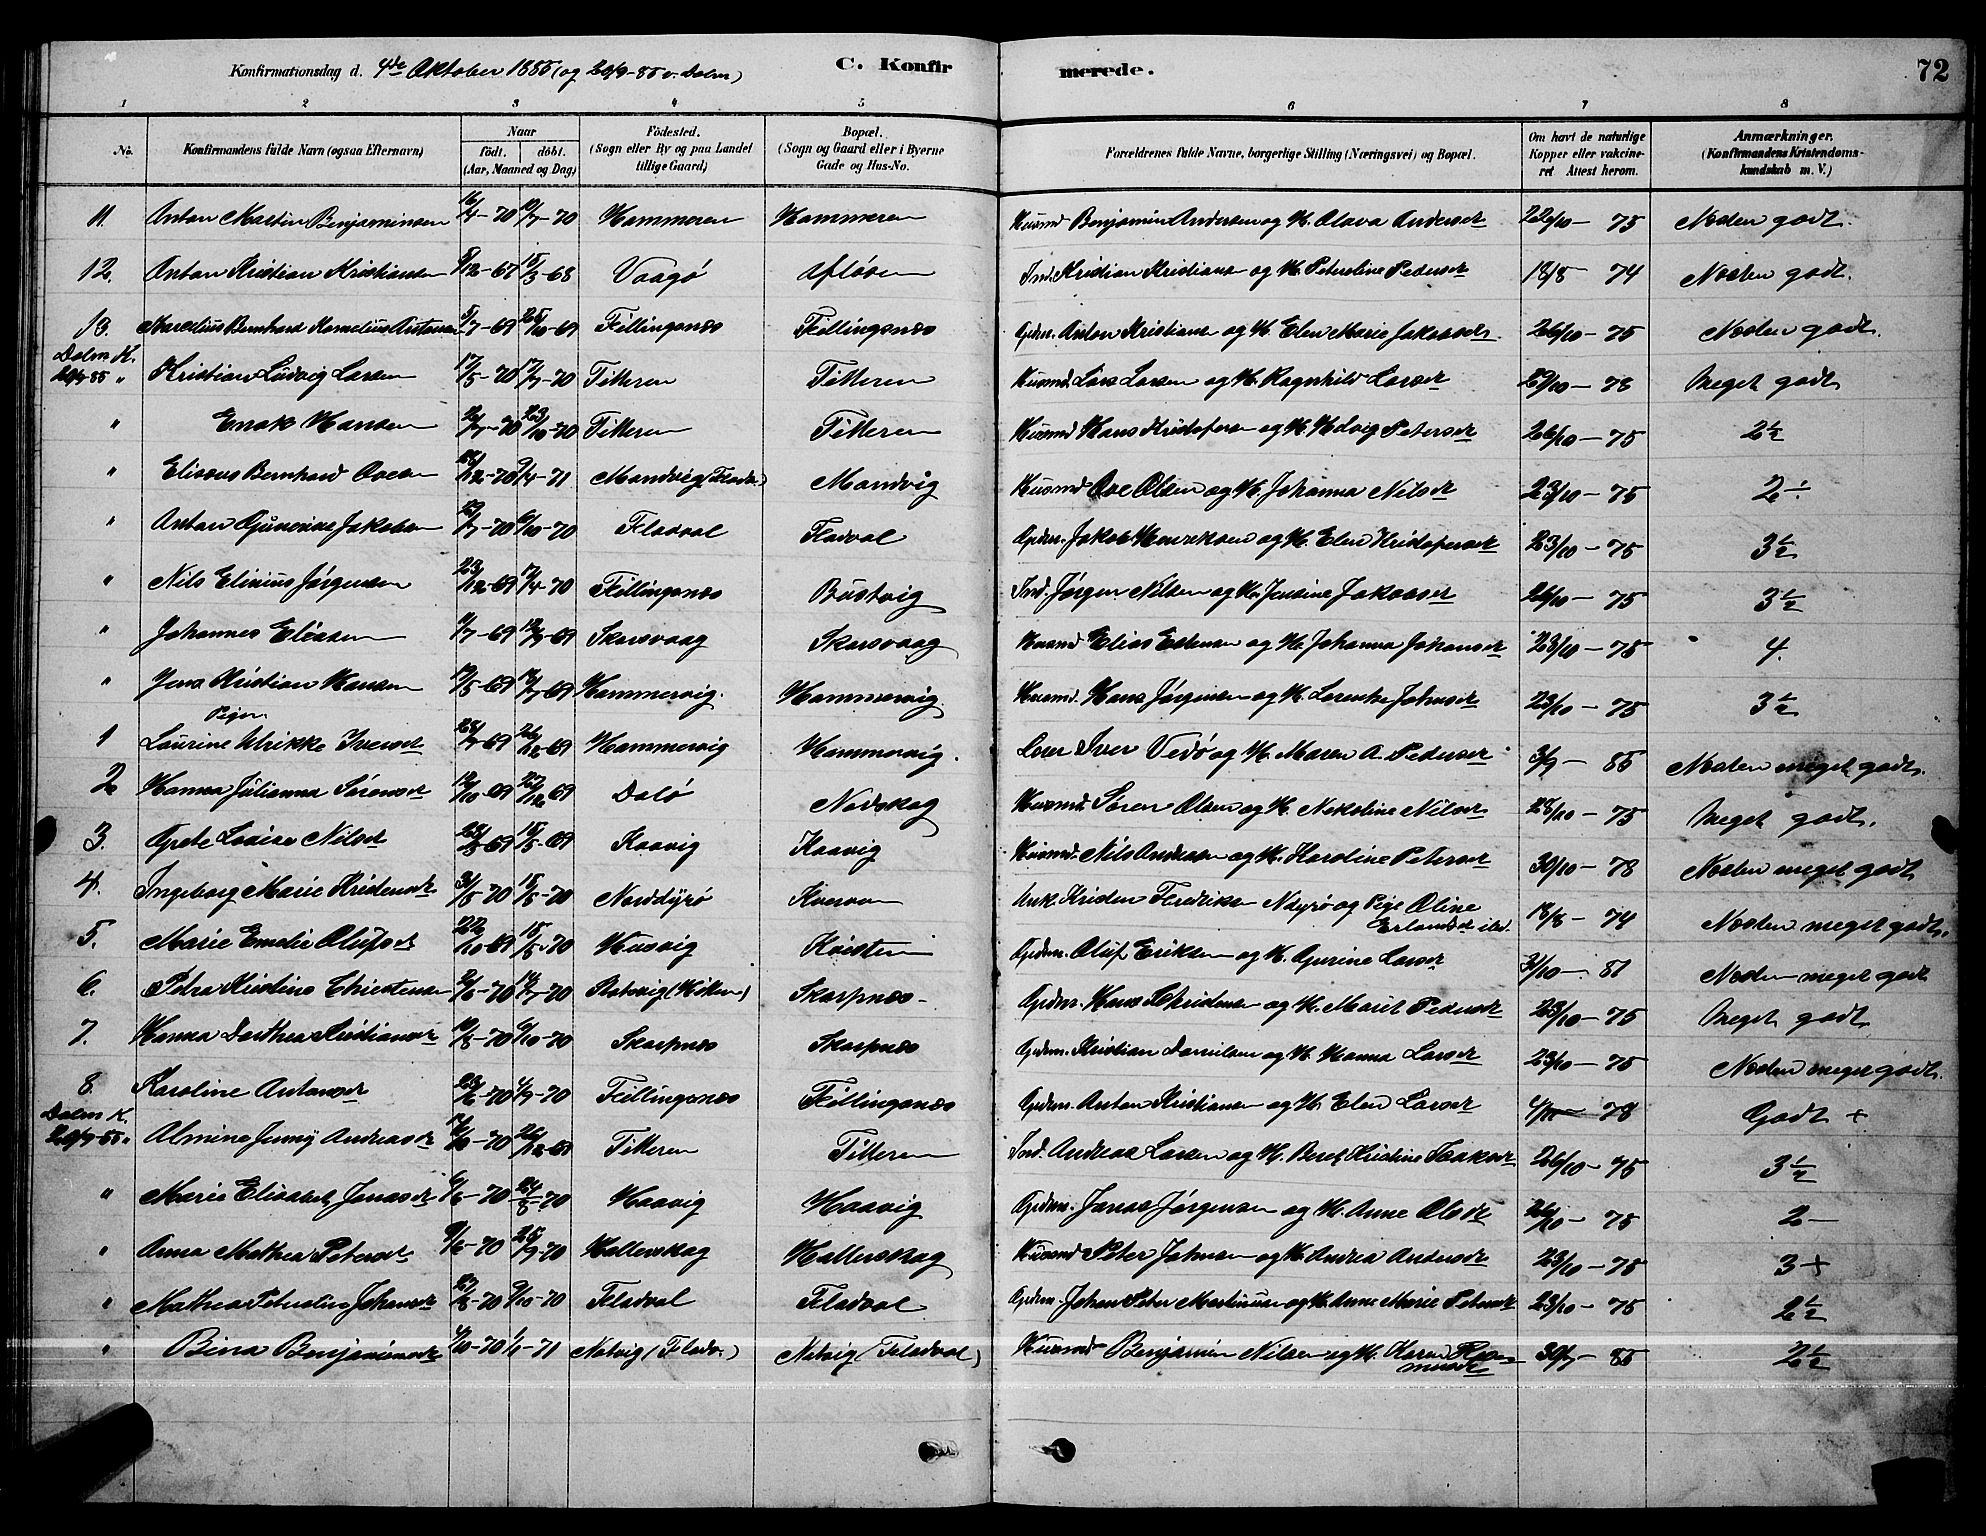 Konfirmationsdag d. 4de Oktober 1885 (og 20/9-85 v. Dolm) C. Konfirmerede. 72
1 2 3 4 5 6 7 8
No. Konfirmandens fulde Navn (ogsaa Efternavn) Naar födt. döbt. (Aar, Maaned og Dag) Födested. (Sogn eller By og paa Landet tillige Gaard) Bopæl. (Sogn og Gaard eller i Byerne Gade og Hus-No. Forældrenes fulde Navne, borgerlige Stilling (Næringsvei) og Bopæl. Om havt de naturlige Kopper eller vakcineret Attest herom. Anmærkninger. (Konfirmandens Kristendomskundskab m. V.)
11. Anton Martin Benjaminsen 16/4-70 10/7-70 Hammeren Hammeren Husmd Benjamin Andersen og H. Olava Andersdt 22/10-75 Næsten godt.
12. Anton Kristian Kristiansen 5/12-67 15/3-68 Vaagø Ind. Kristian Kristiansen og H. Peteroline Pedersdt 18/8 74 Næsten godt.
13. Marselius Bernhard Kornelius Antonsen 5/7-69 25/10-69 Fillingsnæs Fillingsnæs Gdbr. Anton Kristiansen og H. Elen Marie Jakobsdt. 26/10-75 Næsten godt.
Dolm K. 20/9-85 " Kristian Ludvig Larsen 17/5-70 17/7-70 Titteren Titteren Husmd Lars Larsen og H. Ragnhild Larsdt 29/10-78 Meget godt
" Enok Hansen 23/10-70 Titteren Titteren Husmd Hans Kristofersen og H. Hedvig Petersdt 26/10-75 2½
" Eliseus Bernhard Ovesen 9/4-71 Mandvig (Fladv.) Mandvig Husmd Ove Olsen og H. Johanna Nilsdt 23/10-75 2÷
" Anton Jakobsen 9/10-70 Fladval Fladval Gdbr. Jakob Henriksen og H. Elen Kristofersdt 23/10-75 3½
" Nils Elinius Jørgensen 23/12-69 17/4-70 Fillingsnæs Bustvig Ind. Jørgen Nilsen og H. Jensine Jakobsdt 26/10-75 3½
" Johannes Eliasen Skarsvaag Skarsvaag Husmd Elias Estensen og H. Johanna Johansdt 23/10-75 4.
" Jens Kristian Hansen Hammervig. Hammervig Husmd. Hans Jørgensen og H. Lorentse Johnsdt 23/10-75 3½
Piger
1 Laurine Ulrikke Iversdt 26/12-69 Hammervig Hammervig. Iver Vedø og H. Maren A. Pedersdt 3/9 85 Næsten meget godt.
2 Hanna Julianna Sørensdt 12/10-69 27/12-69 Dalø Nedskag Husmd. Søren Olsen og H. Nekoline Nilsdt 23/10-75 Meget godt.
3. Grete Lovise Nilsdt 15/5-69 Kaavig Kaavig Husmd. Nils Andersen og H. Karoline Petersdt 30/10-78 Næsten meget godt
4. Ingeborg Marie Kristensdt 31/3-70 15/5-70 Norddyrø Kvervan Ank. Kristen Fredriksen Ndyrø og Pige Oline Erlandsdt 18/8-74 Næsten meget godt.
5. Marie Emelie Olufsdt 22/10-69 15/5-70 Husvig Gdbr. Oluf Eriksen og H. Gurine Larsdt 31/10-81 Næsten meget godt
6. Petra Kristine Christensen Ratvig (Hitteren) Skarpnæs Gdbr. Hans Kristensen og H. Marit Pedersdt 23/10-75 Meget godt
7. Hanna Dorthea Kristiansdt 9/10-70 Skarpnæs Skarpnæs Gdbr. Kristian Danielsen og H. Hanna Larsdt 23/10-75 Næsten meget godt.
8. Karoline Antonsdt 4/9-70 Fillingsnæs Fillingsnæs Gdbr. Anton Kristiansen og H. Elen Larsdt 78 Godt +
Dolm K. 20/9-85 " Almine Jenny Andreasdt 26/12-69 Titteren Titteren Ind. Andreas Larsen og H. Beret Kristine Isaksdt 26/10-75 3½
" Marie Elisabet Jonasdt 6/6-70 24/8-70 Haavig Haavig Gdbr. Jonas Jørgensen og H. Anne Olsdt 26/10-75 2-
" Anna Mathea Petersdt 9/6-70 25/9-70 Hallenskag Hallenskag Husmd Peter Johnsen og H. Andrea Andersdt 23/10-75 3+
" Mathea Peternline Johansdt 9/10-70 Fladval Fladval Gdbr. Johan Peter Martinusen og H. Anne Marie Petersdt 23/10-75 2½
" Bina Benjaminsdt 4/10-70 1/1-71 Natvig (Fladv.) Natvig (Fladval) Husmd Benjamin Nilsen og H. Karen Rasmusdt 30/7-85 2½